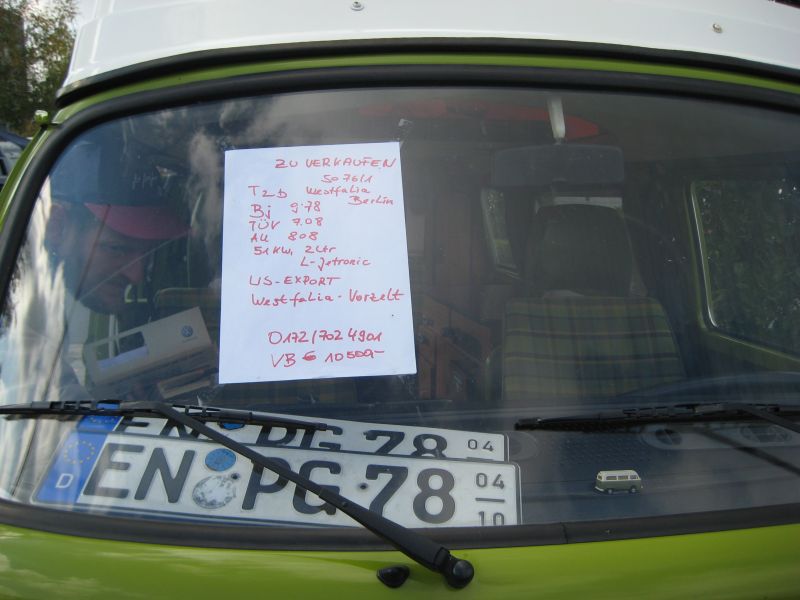 ZU VERKAUFEN
T2b Westfalia Berlin
Bj 9.78
TÜV 7.08
AU 808
51 KW, 2Ltr
L-Jetronic
US-EXPORT
Westfalia-Vorzelt
0172/702 4901
VB €
EN PG 78 04
D EN PG 78 04
10